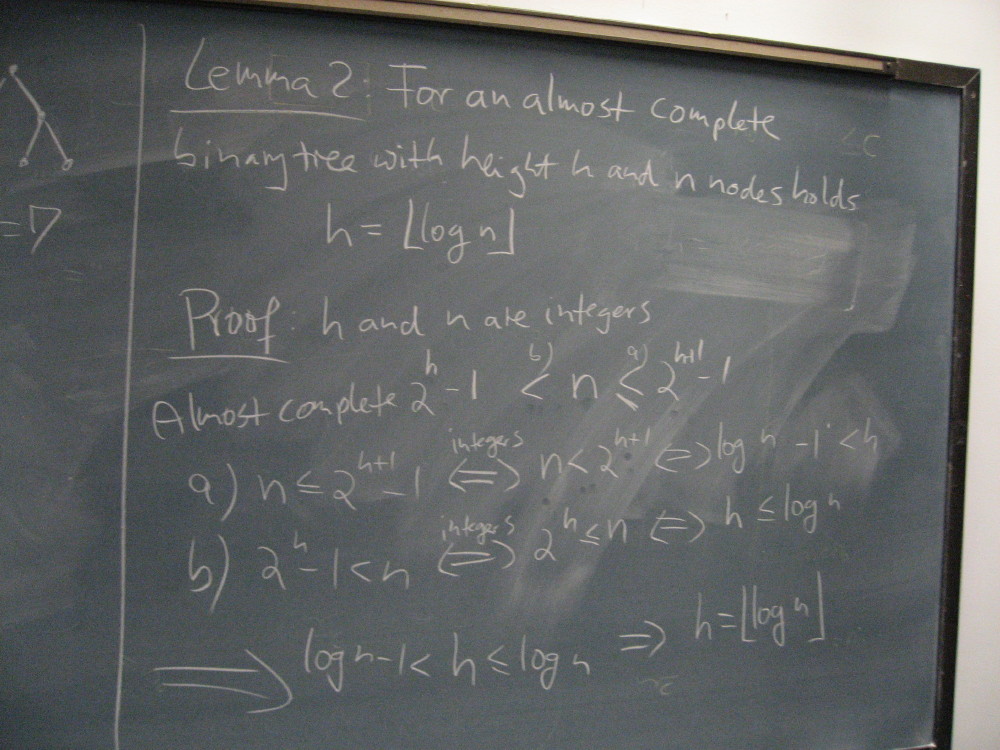 =7
Lemma 2: For an almost complete
binary tree with height h and n nodes holds
h = ⌊log n⌋
Proof: h and n are integers
Almost complete 2^h - 1 <^{b)} n ≤^{a)} 2^{h+1} - 1
a) n ≤ 2^{h+1} - 1 ⇔^{integers} n < 2^{h+1} ⇔ log n - 1 < h
b) 2^h - 1 < n ⇔^{integers} 2^h ≤ n ⇔ h ≤ log n
⟹ log n - 1 < h ≤ log n ⇒ h = ⌊log n⌋